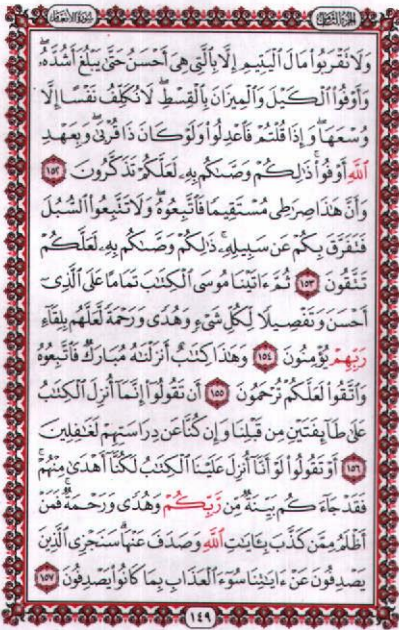 سورة الأنعام
الجزء الثامن
وَلَا تَقْرَبُوا۟ مَالَ ٱلْيَتِيمِ إِلَّا بِٱلَّتِى هِىَ أَحْسَنُ حَتَّىٰ يَبْلُغَ أَشُدَّهُۥ ۖ
وَأَوْفُوا۟ ٱلْكَيْلَ وَٱلْمِيزَانَ بِٱلْقِسْطِ ۖ لَا نُكَلِّفُ نَفْسًا إِلَّا
وُسْعَهَا ۖ وَإِذَا قُلْتُمْ فَٱعْدِلُوا۟ وَلَوْ كَانَ ذَا قُرْبَىٰ ۖ وَبِعَهْدِ
ٱللَّهِ أَوْفُوا۟ ۚ ذَٰلِكُمْ وَصَّىٰكُم بِهِۦ لَعَلَّكُمْ تَذَكَّرُونَ ١٥٢
وَأَنَّ هَـٰذَا صِرَٰطِى مُسْتَقِيمًا فَٱتَّبِعُوهُ ۖ وَلَا تَتَّبِعُوا۟ ٱلسُّبُلَ
فَتَفَرَّقَ بِكُمْ عَن سَبِيلِهِۦ ۚ ذَٰلِكُمْ وَصَّىٰكُم بِهِۦ لَعَلَّكُمْ
تَتَّقُونَ ١٥٣ ثُمَّ ءَاتَيْنَا مُوسَى ٱلْكِتَـٰبَ تَمَامًا عَلَى ٱلَّذِىٓ
أَحْسَنَ وَتَفْصِيلًا لِّكُلِّ شَىْءٍ وَهُدًى وَرَحْمَةً لَّعَلَّهُم بِلِقَآءِ
رَبِّهِمْ يُؤْمِنُونَ ١٥٤ وَهَـٰذَا كِتَـٰبٌ أَنزَلْنَـٰهُ مُبَارَكٌ فَٱتَّبِعُوهُ
وَٱتَّقُوا۟ لَعَلَّكُمْ تُرْحَمُونَ ١٥٥ أَن تَقُولُوٓا۟ إِنَّمَآ أُنزِلَ ٱلْكِتَـٰبُ
عَلَىٰ طَآئِفَتَيْنِ مِن قَبْلِنَا وَإِن كُنَّا عَن دِرَاسَتِهِمْ لَغَـٰفِلِينَ
١٥٦ أَوْ تَقُولُوا۟ لَوْ أَنَّآ أُنزِلَ عَلَيْنَا ٱلْكِتَـٰبُ لَكُنَّآ أَهْدَىٰ مِنْهُمْ ۚ
فَقَدْ جَآءَكُم بَيِّنَةٌ مِّن رَّبِّكُمْ وَهُدًى وَرَحْمَةٌ ۚ فَمَنْ
أَظْلَمُ مِمَّن كَذَّبَ بِـَٔايَـٰتِ ٱللَّهِ وَصَدَفَ عَنْهَا ۗ سَنَجْزِى ٱلَّذِينَ
يَصْدِفُونَ عَنْ ءَايَـٰتِنَا سُوٓءَ ٱلْعَذَابِ بِمَا كَانُوا۟ يَصْدِفُونَ ١٥٧
١٤٩